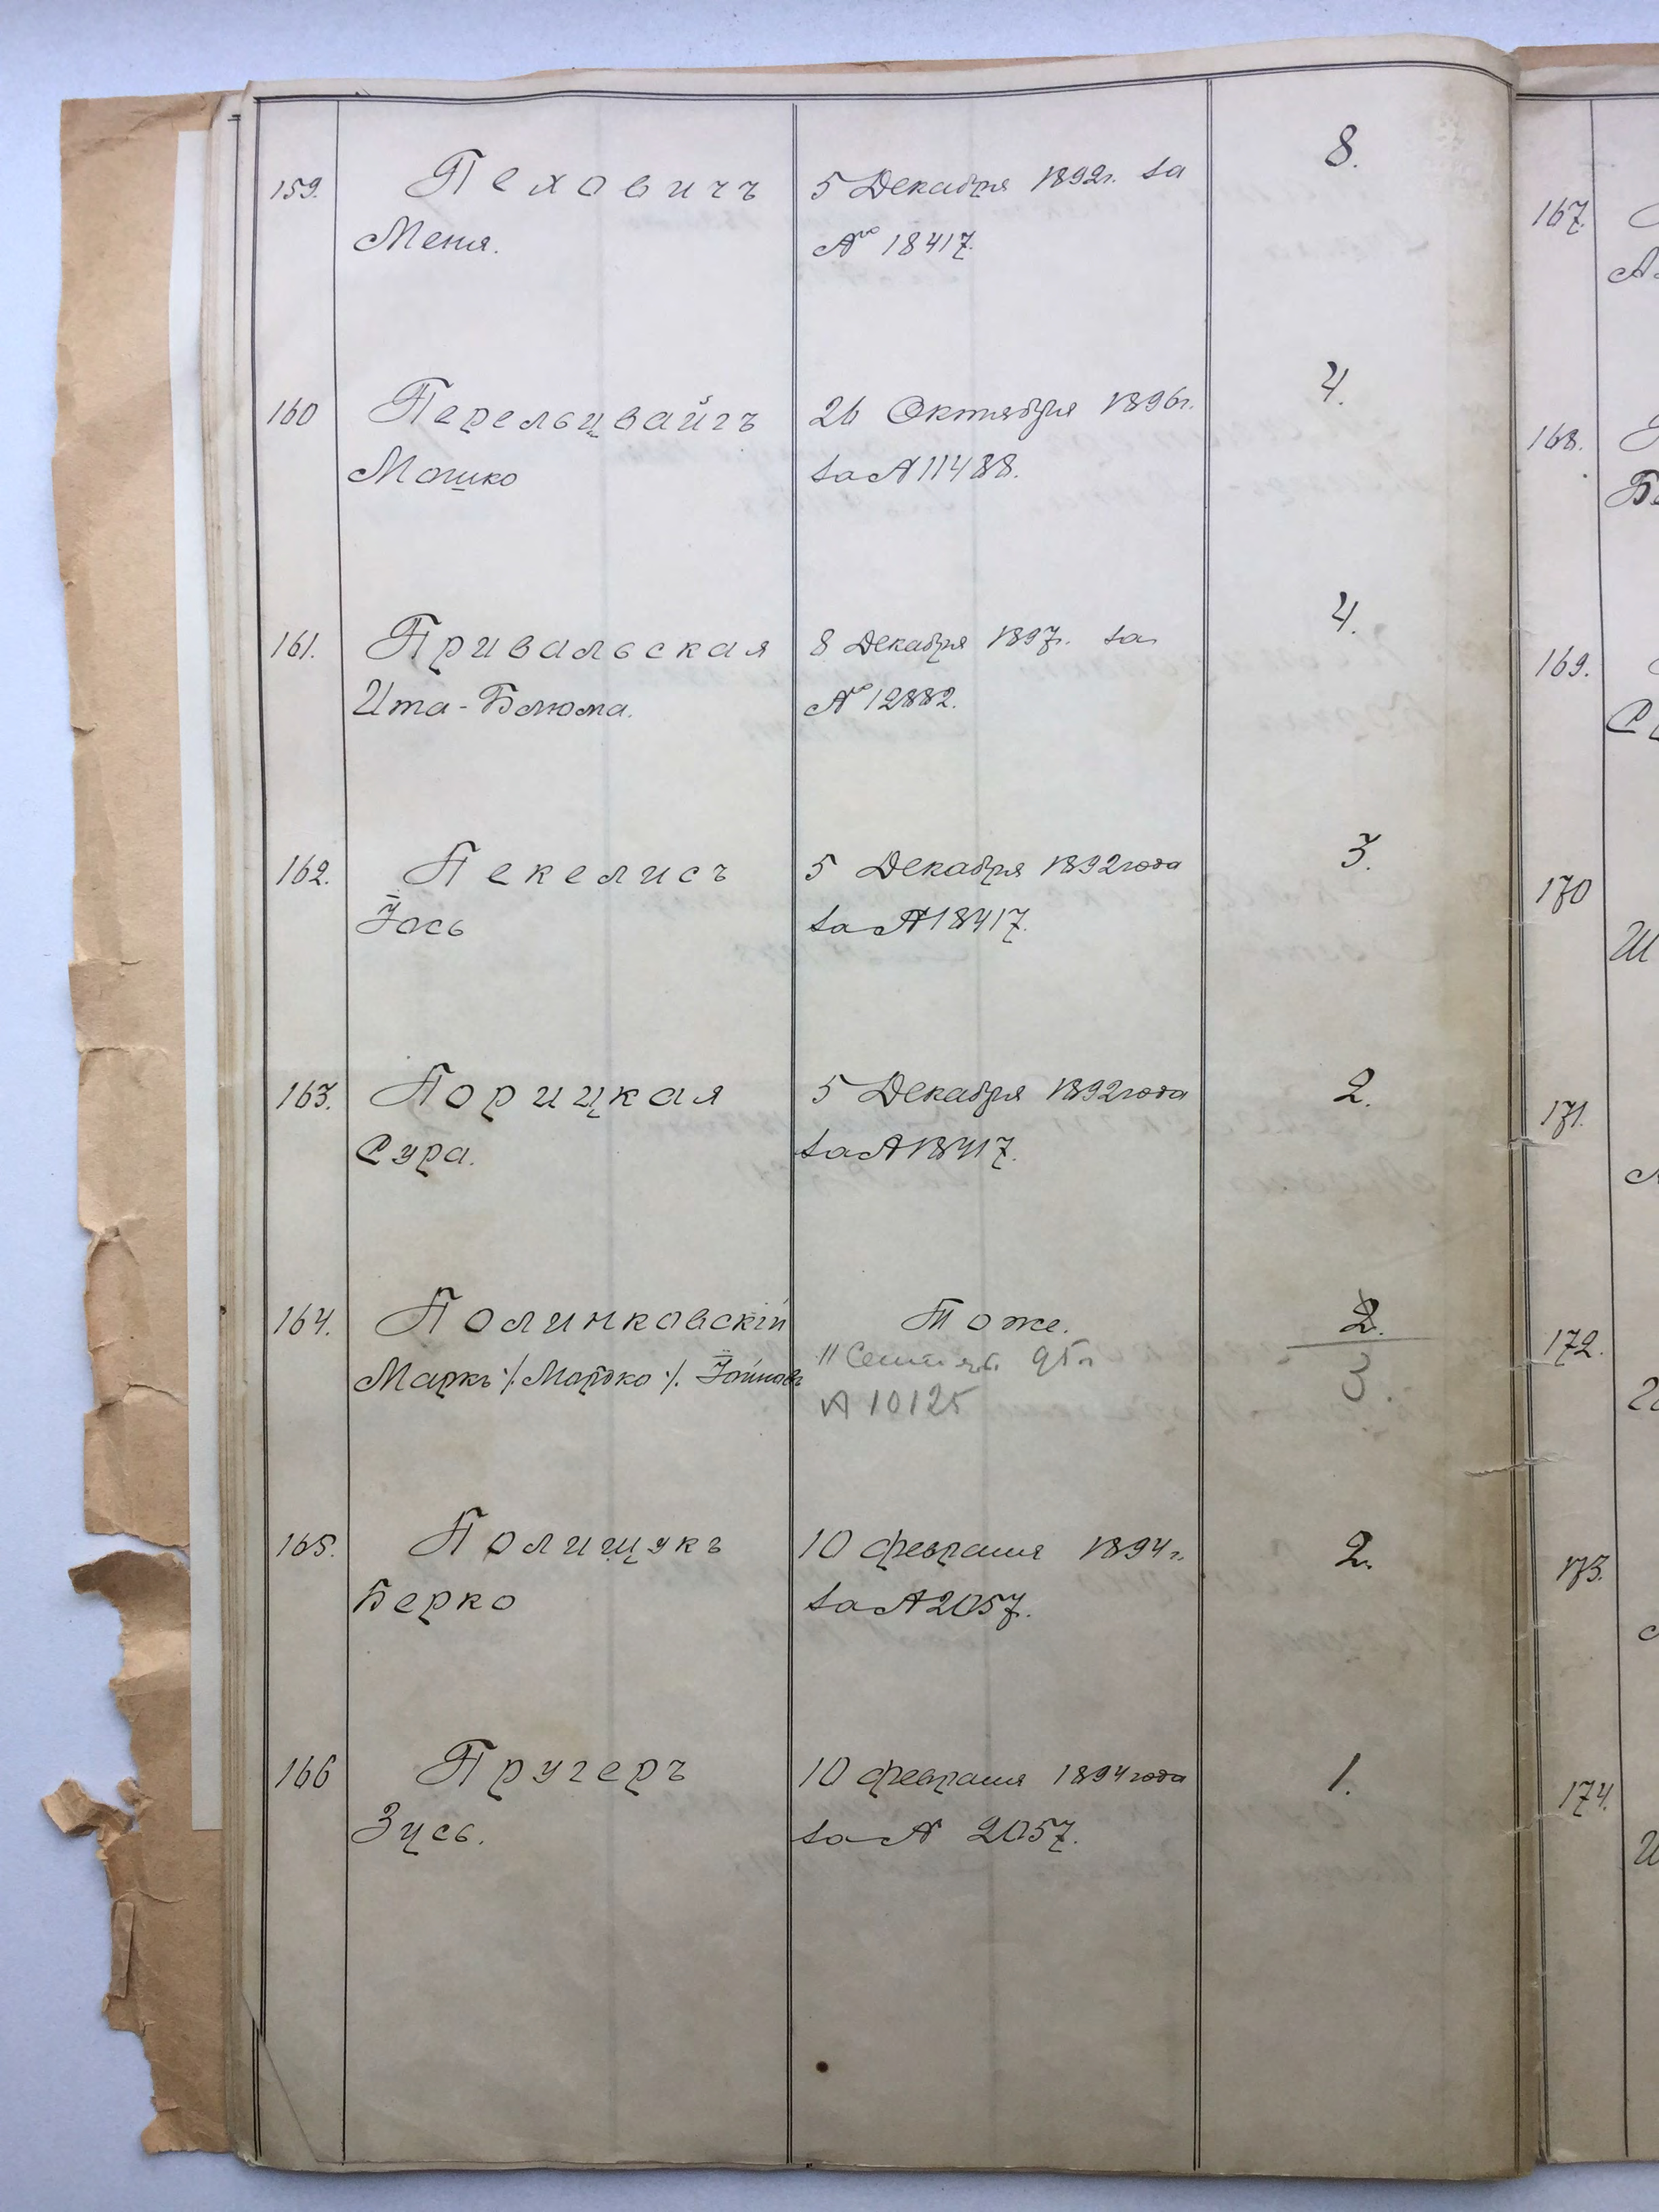 159. Пеховичъ 5 Декабря 1892г. за 8.
Меня. № 18417.
160 Перельцвайгъ 26 Октября 1896г. 4.
Мошко за № 11488.
161. Привальская 8 Декабря 1897г. за 4.
Ита-Блюма. № 12882.
162. Пекелисъ 5 Декабря 1892 года 3.
Іось за № 18417.
163. Порицкая 5 Декабря 1892 года 2.
Сура. за № 18417.
164. Полинковскій Тоже. 2.
Маркъ ·/. Мордко ·/. 11 Сентяб. 95г 3.
№ 10125
165. Полищукъ 10 февраля 1894 г. 2.
Берко за № 2057.
166 Пругеръ 10 февраля 1894 года 1.
Зусь. за № 2057.
167.
А
168.
Б
169.
С
170
Ш
171.
172.
173.
174.